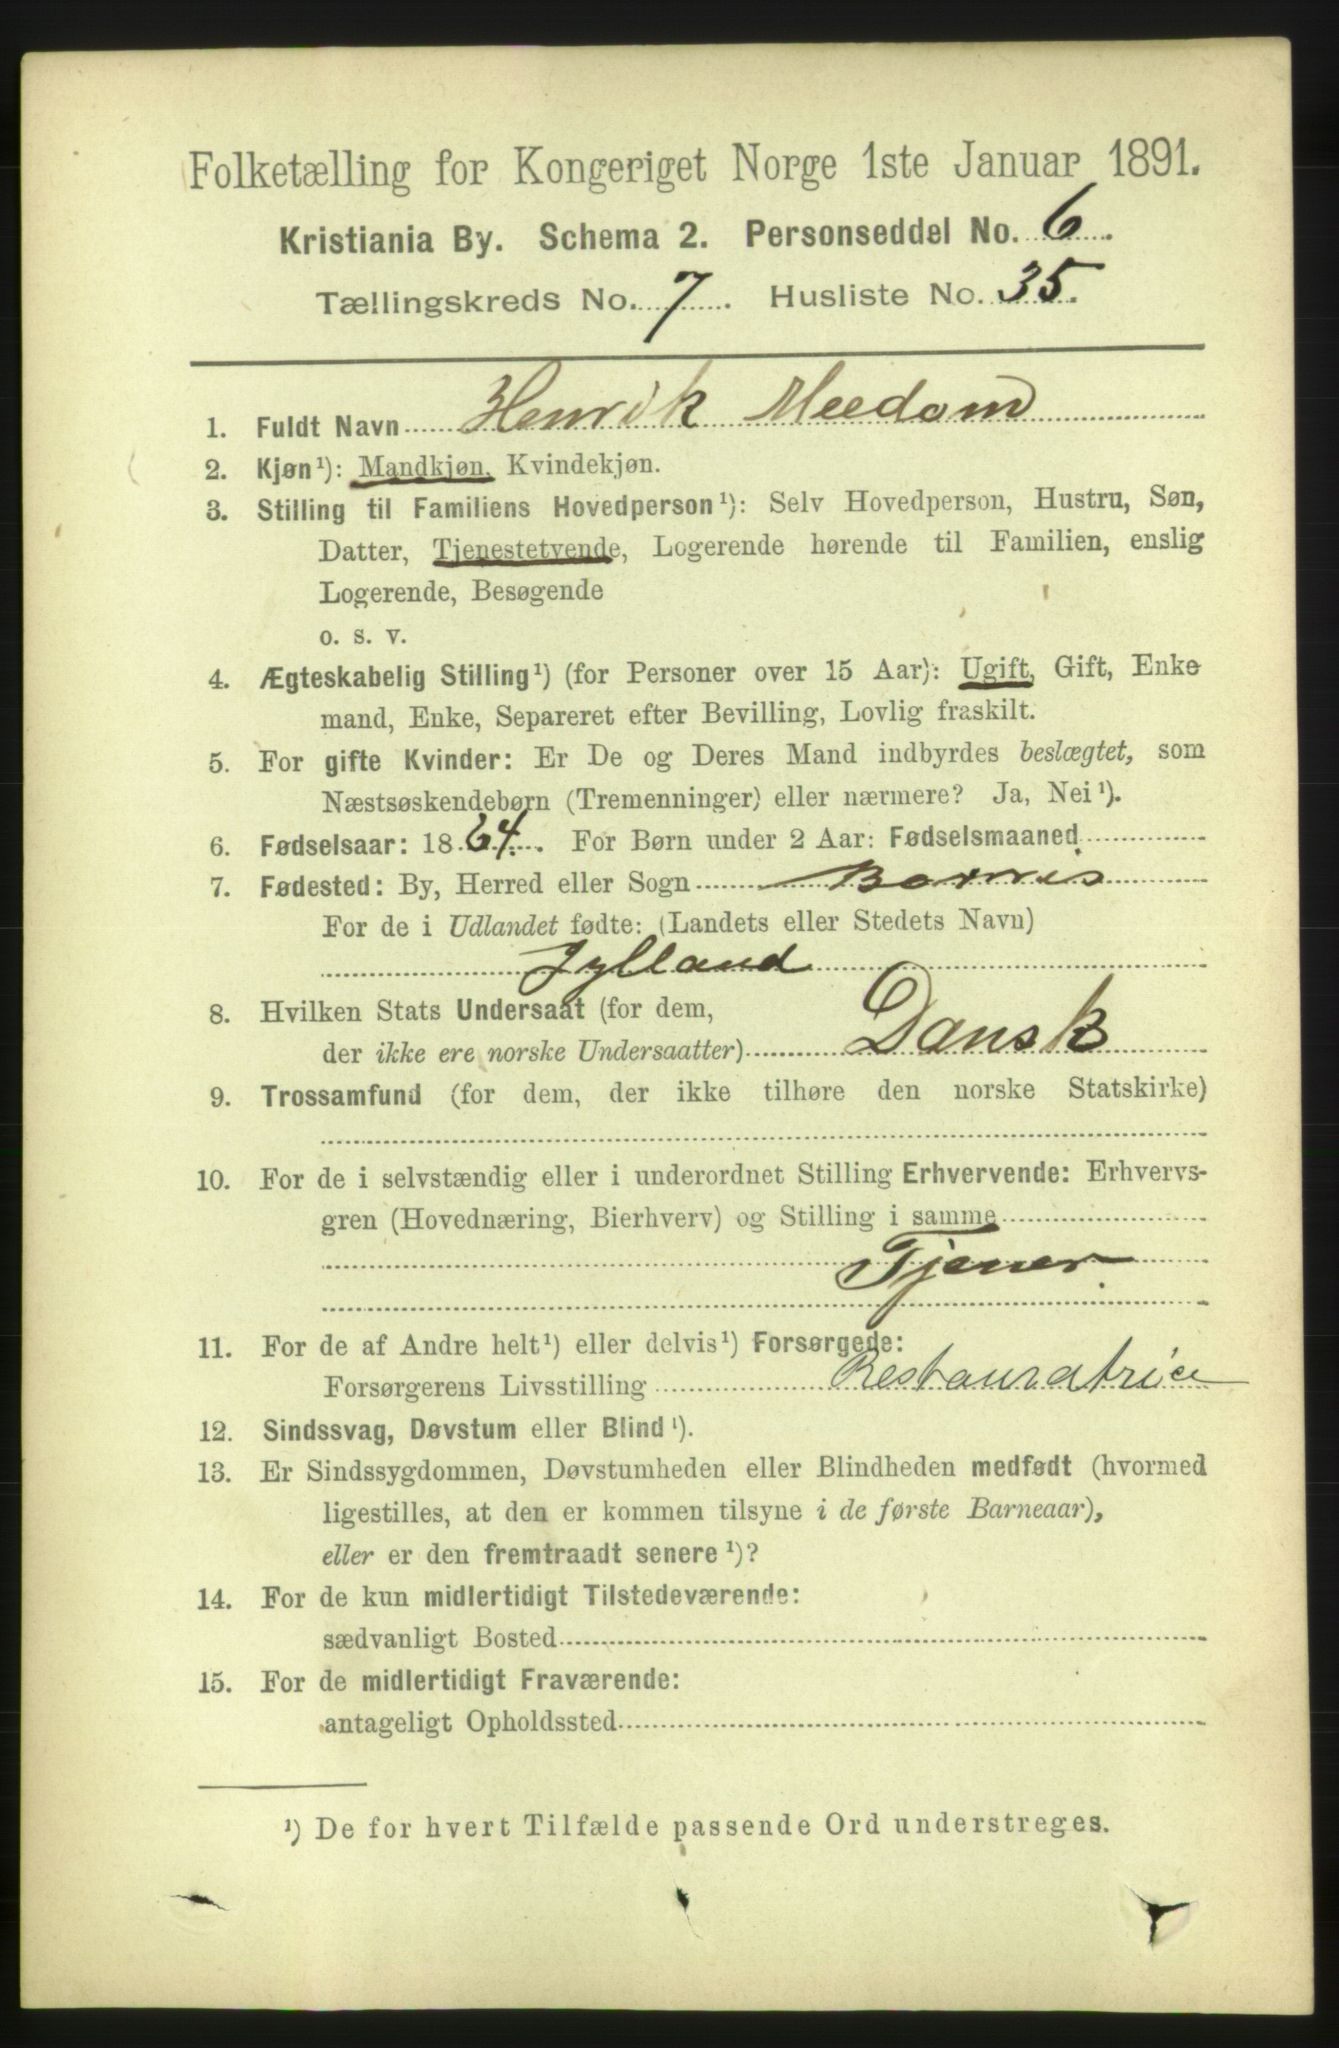 Folketælling for Kongeriget Norge 1ste Januar 1891.
Kristiania By. Schema 2. Personseddel No. 6.
Tællingskreds No. 7. Husliste No. 35.
1. Fuldt Navn Henrik Meedom
2. Kjøn¹): Mandkjøn, Kvindekjøn.
3. Stilling til Familiens Hovedperson¹): Selv Hovedperson, Hustru, Søn,
Datter, Tjenestetyende, Logerende hørende til Familien, enslig
Logerende, Besøgende
o. s. v.
4. Ægteskabelig Stilling¹) (for Personer over 15 Aar): Ugift, Gift, Enke-
mand, Enke, Separeret efter Bevilling, Lovlig fraskilt.
5. For gifte Kvinder: Er De og Deres Mand indbyrdes beslægtet, som
Næstsøskendebørn (Tremenninger) eller nærmere? Ja, Nei¹).
6. Fødselsaar: 1864. For Børn under 2 Aar: Fødselsmaaned
7. Fødested: By, Herred eller Sogn
For de i Udlandet fødte: (Landets eller Stedets Navn)
Jylland
8. Hvilken Stats Undersaat (for dem,
der ikke ere norske Undersaatter) Dansk
9. Trossamfund (for dem, der ikke tilhøre den norske Statskirke)
10. For de i selvstændig eller i underordnet Stilling Erhvervende: Erhvervs-
gren (Hovednæring, Bierhverv) og Stilling i samme
Tjener
11. For de af Andre helt¹) eller delvis¹) Forsørgede:
Forsørgerens Livsstilling Restauratrice
12. Sindssvag, Døvstum eller Blind¹).
13. Er Sindssygdommen, Døvstumheden eller Blindheden medfødt (hvormed
ligestilles, at den er kommen tilsyne i de første Barneaar),
eller er den fremtraadt senere¹)?
14. For de kun midlertidigt Tilstedeværende:
sædvanligt Bosted
15. For de midlertidigt Fraværende:
antageligt Opholdssted
¹) De for hvert Tilfælde passende Ord understreges.